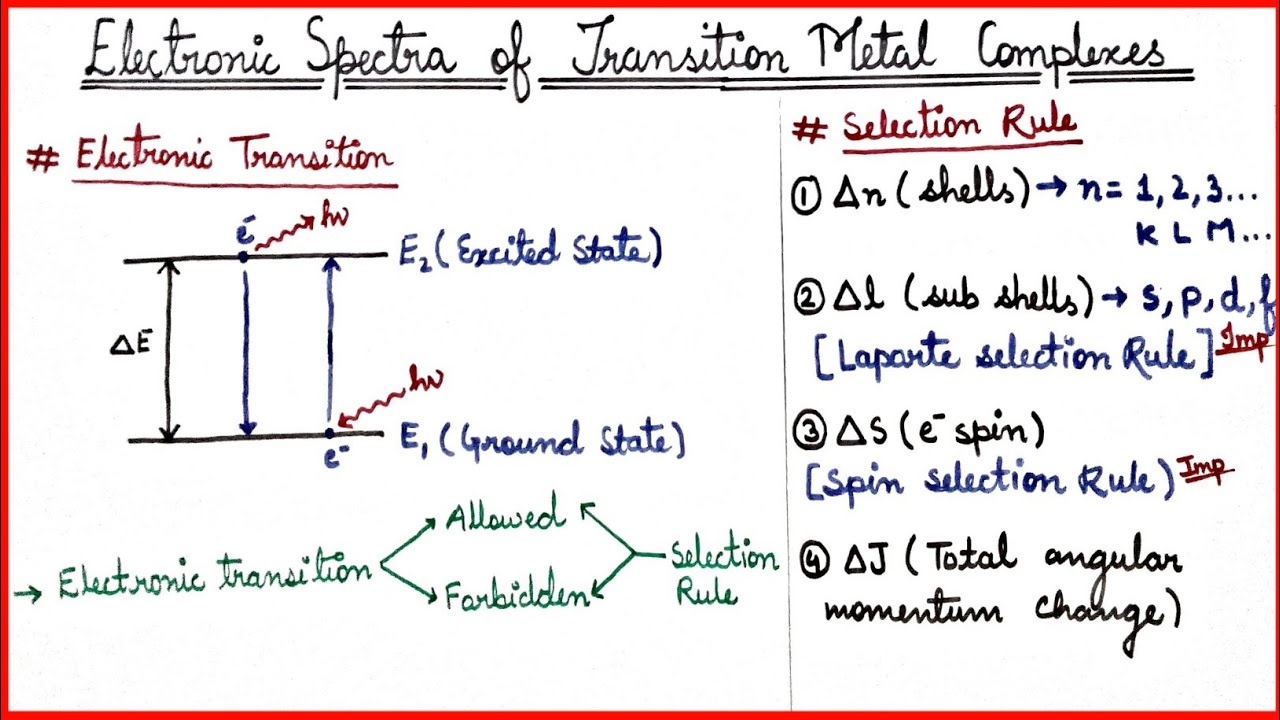 Electronic Spectra of Transition Metal Complexes
# Electronic Transition
hν
e-
E₂ (Excited State)
ΔE
hν
E₁ (Ground State)
e-
→ Electronic transition
Allowed
Forbidden
Selection
Rule
# Selection Rule
① Δn (shells) → n = 1, 2, 3...
K L M...
② Δl (sub shells) → s, p, d, f
[Laporte selection Rule] Imp
③ ΔS (e- spin)
[Spin selection Rule) Imp
④ ΔJ (Total angular
momentum change)